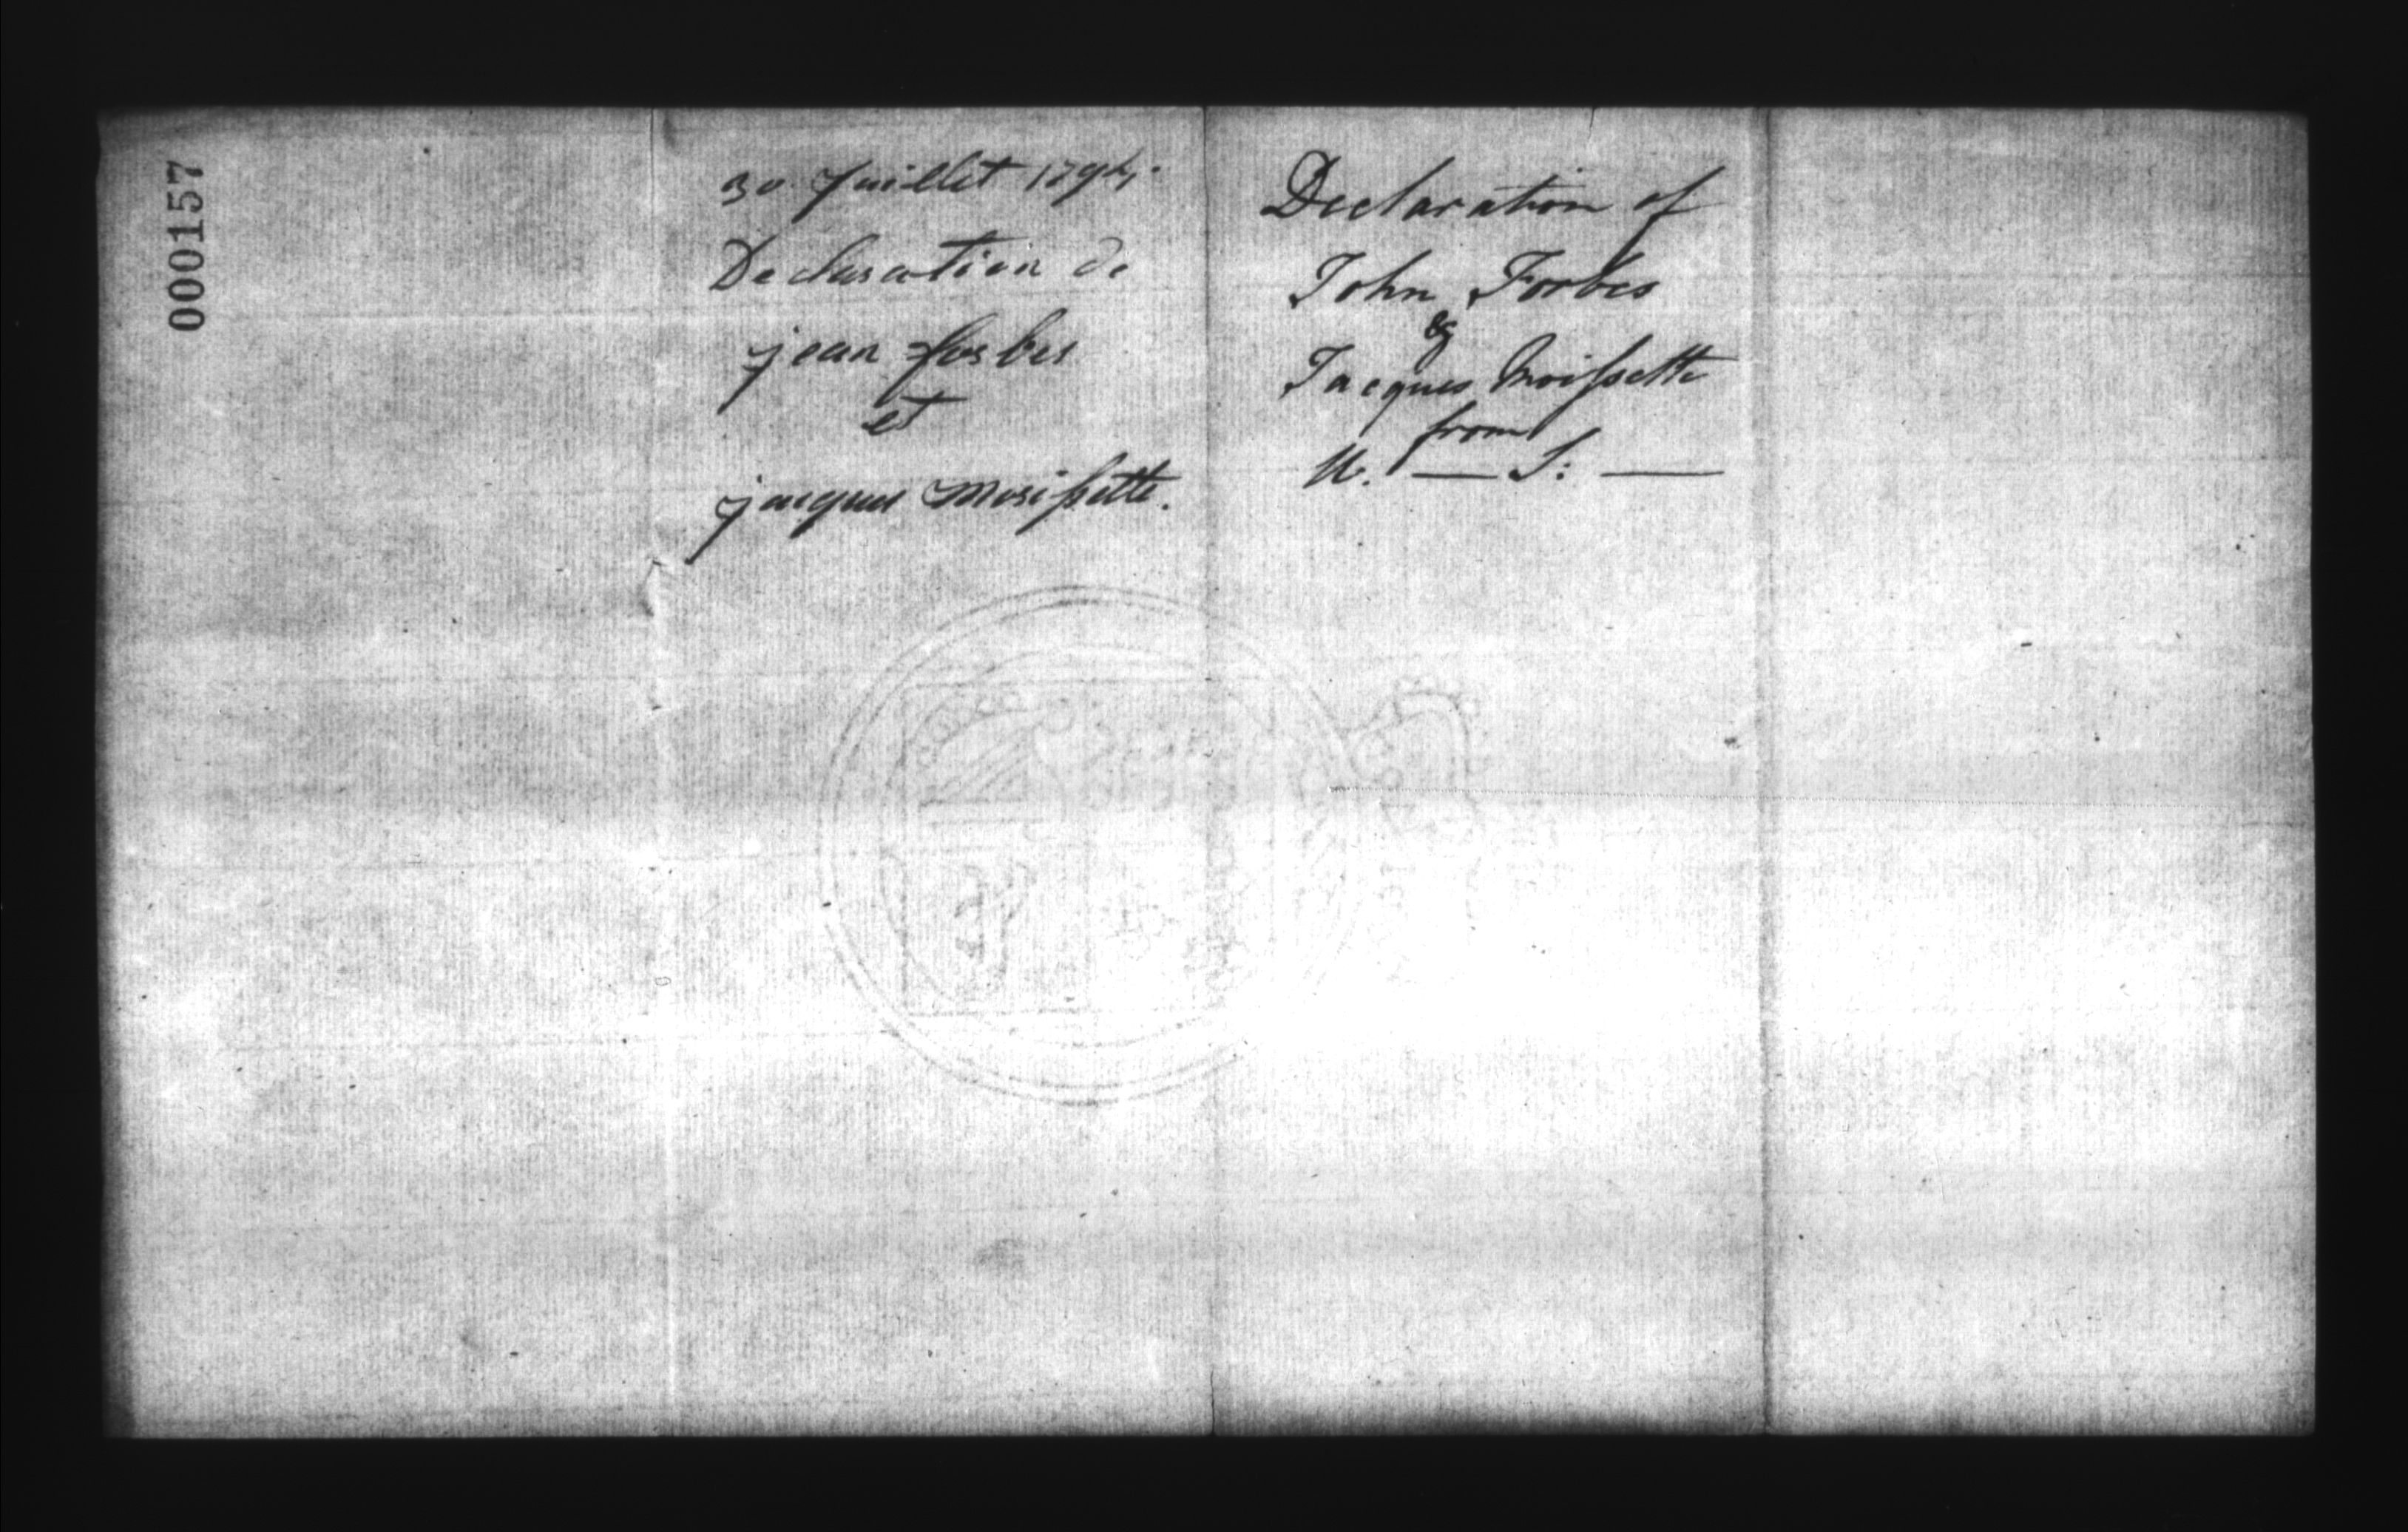 000157
30 Juillet 1794.
Declaration de
jean forbes
et
jacques Morissette.
Declaration of
John Forbes
&
Jacques Moissette
from
U. — S: —